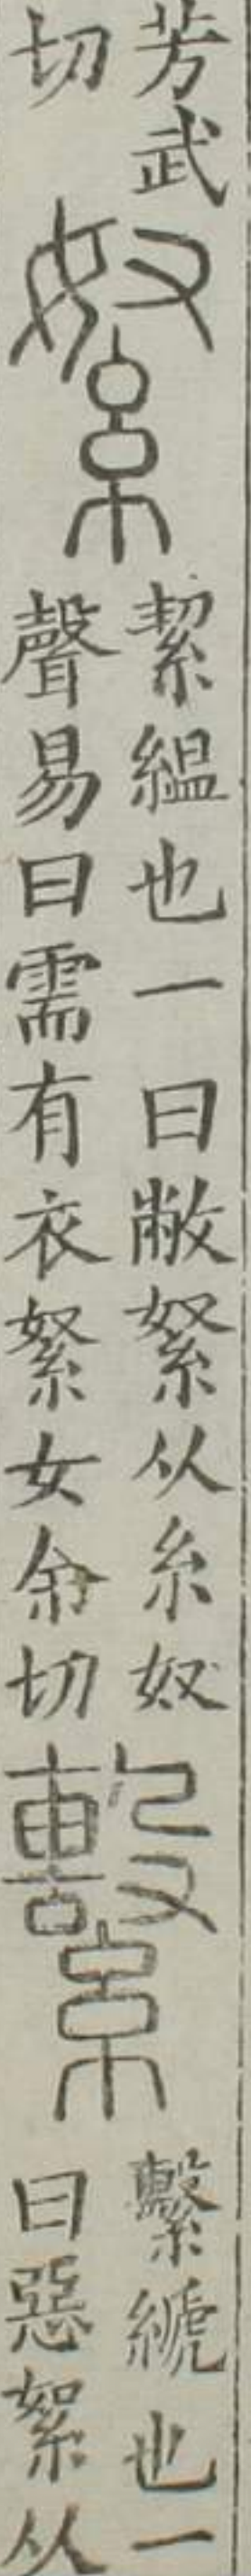 芳武
切
𦃇
絜緼也一曰敝絮从糸奴
聲易曰需有衣𦃇女余切
繫
繫𦃋也一
曰惡絮从